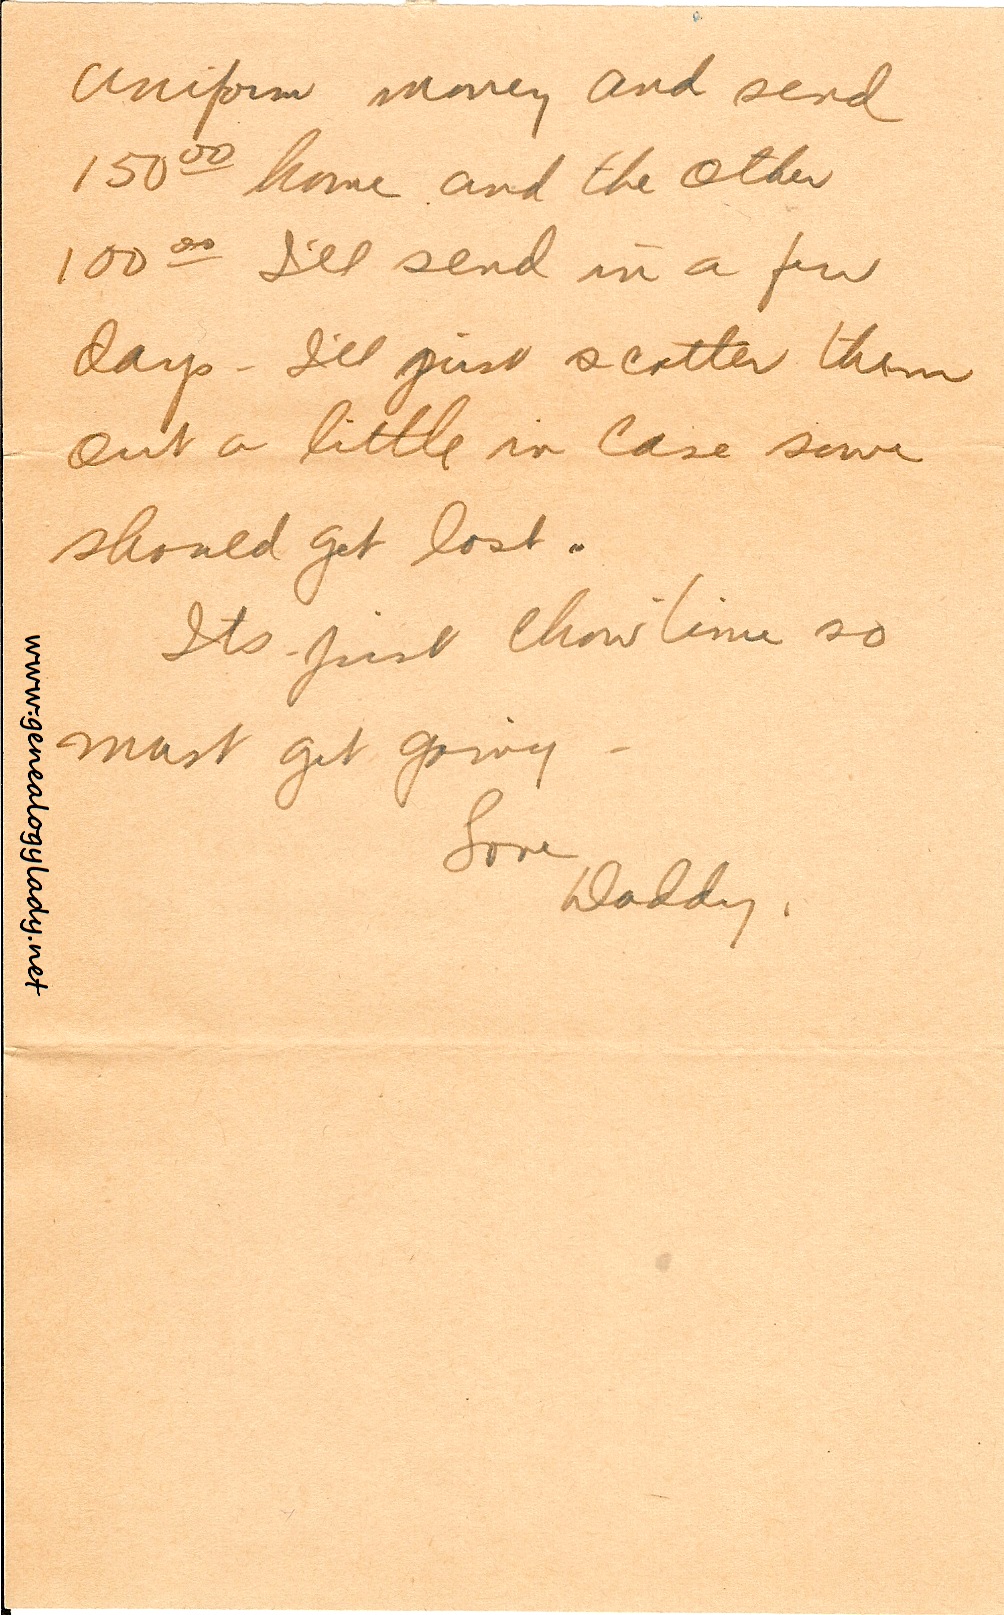 uniform money and send
150.00 home and the other
100.00 I'll send in a few
days - I'll just scatter them
out a little in case some
should get lost.
Its just chow time so
must get going -
Love
Daddy.
www.genealogylady.net